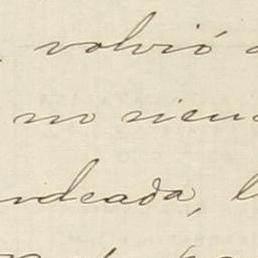 volvió
no sien
ndeada, l